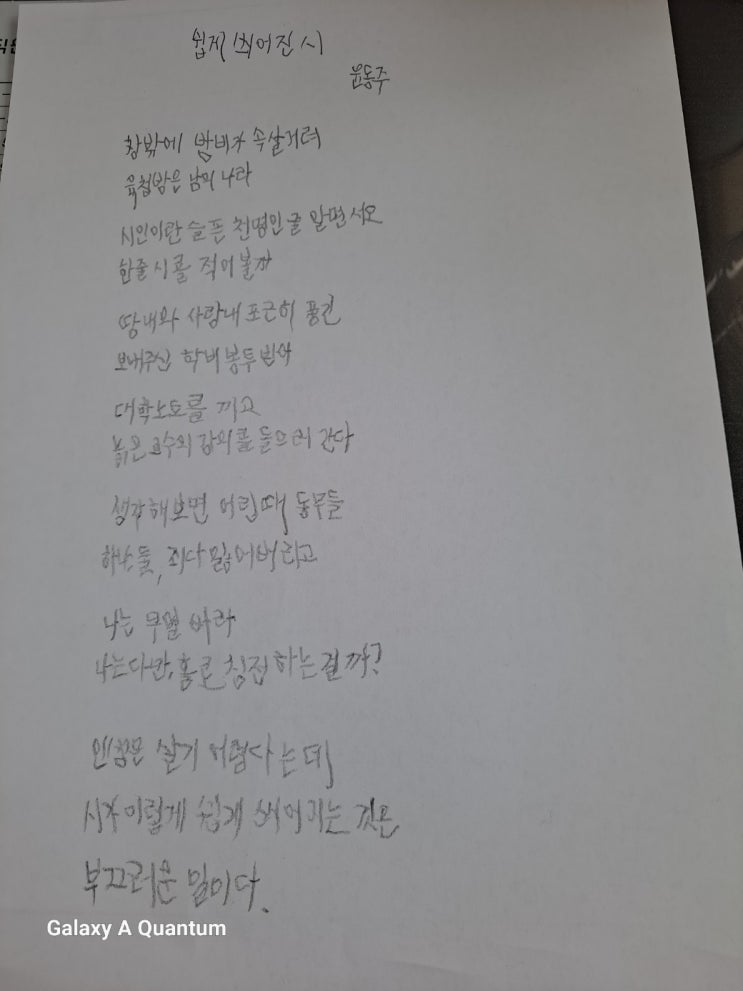 쉽게 씌어진 시
윤동주
창밖에 밤비가 속살거려
육첩방은 남의 나라
시인이란 슬픈 천명인 줄 알면서도
한줄 시를 적어볼까
땀내와 사랑내 포근히 품긴
보내주신 학비봉투 받아
대학노트를 끼고
늙은 교수의 강의를 들으러 간다
생각해보면 어린때 동무들
하나, 둘, 죄다 잃어버리고
나는 무얼 바라
나는 다만, 홀로 침전하는 걸까?
인생은 살기 어렵다는데
시가 이렇게 쉽게 씌어지는 것은
부끄러운 일이다.
Galaxy A Quantum